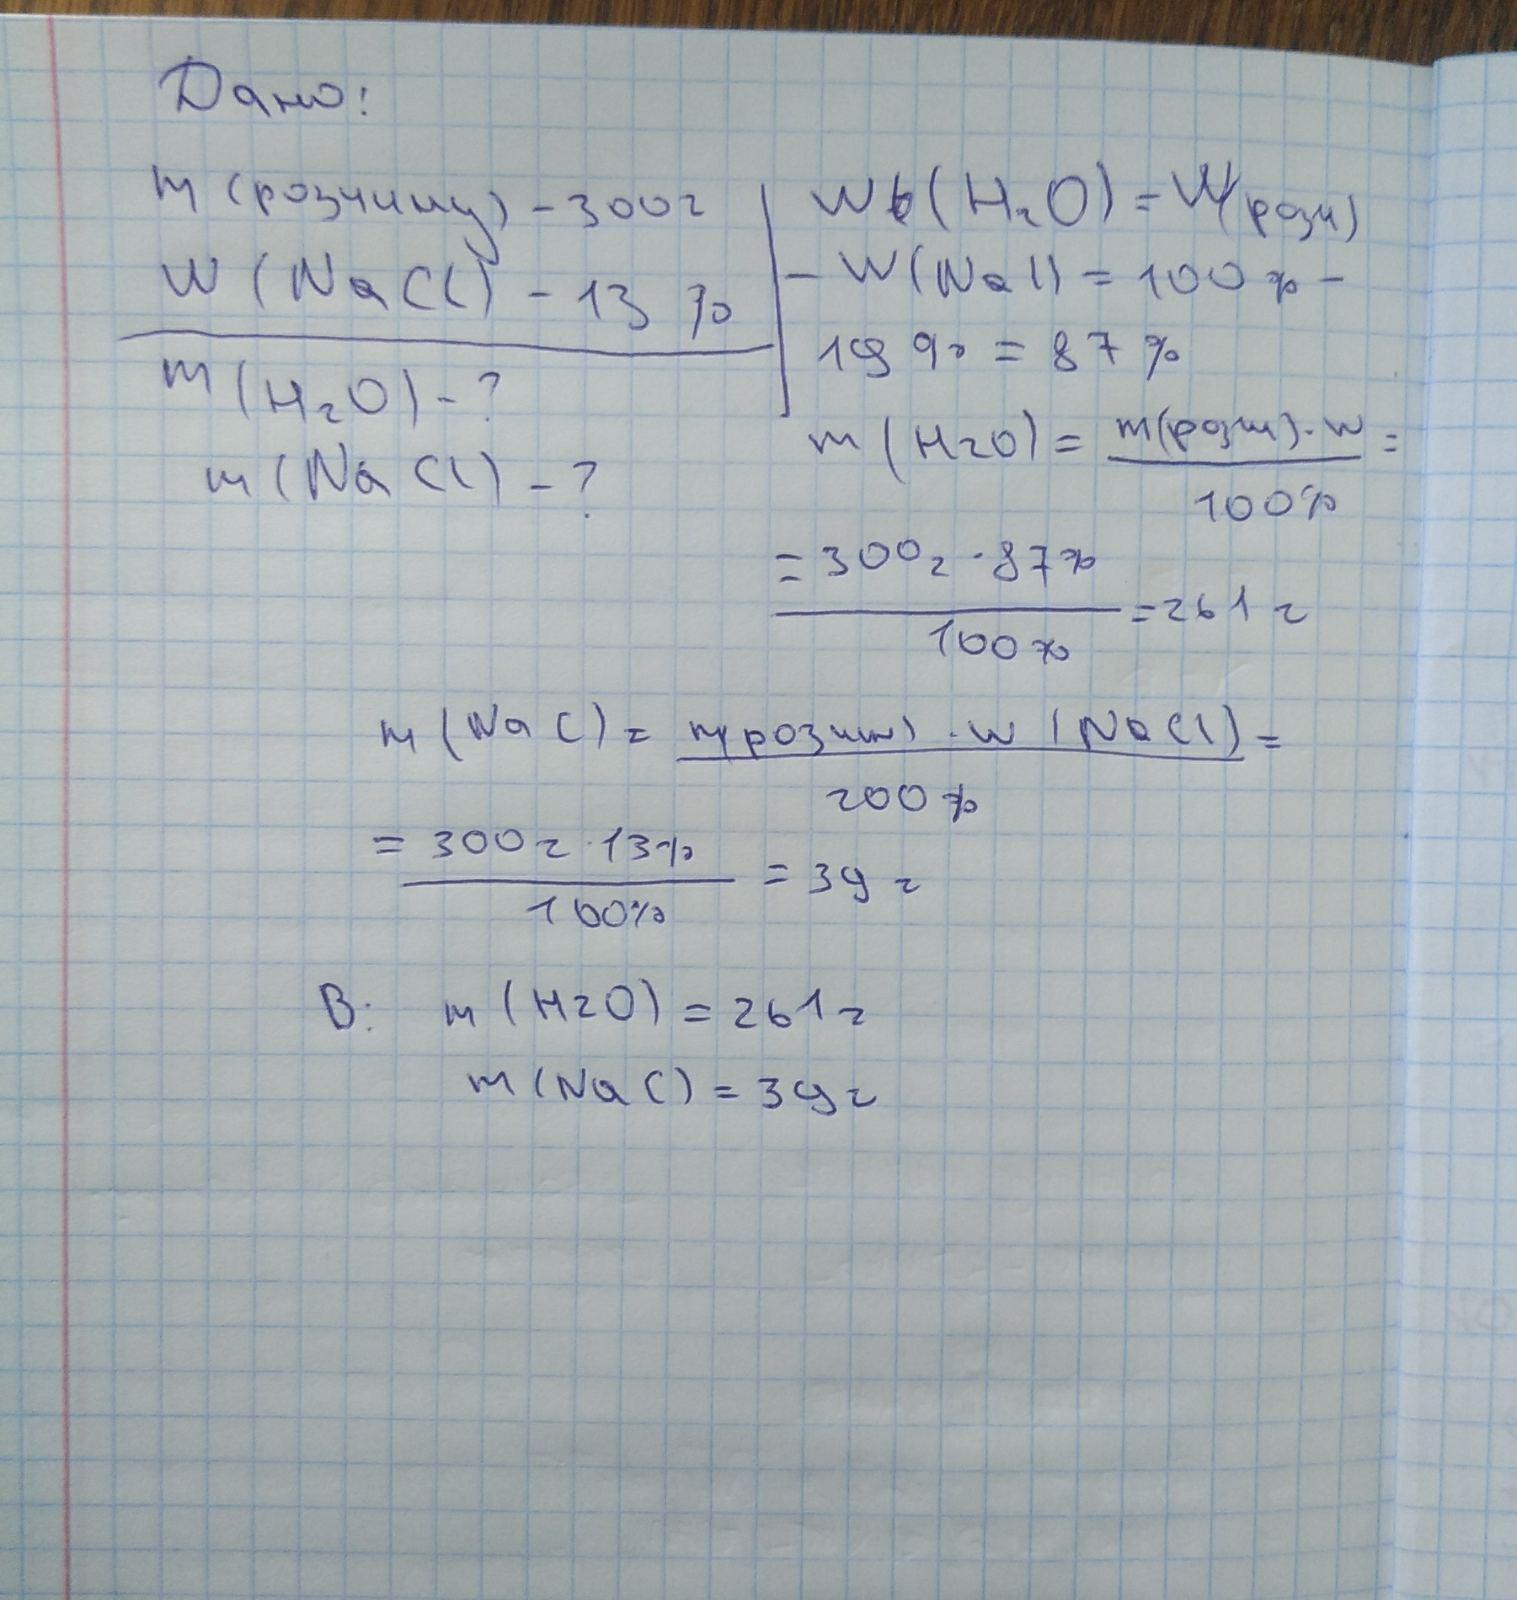 Дано:
m (розчину) - 300г
W (NaCl) - 13 %
m (H2O) - ?
m (NaCl) - ?
W (H2O) = W(розч)
- W (NaCl) = 100 % -
13 % = 87 %
m (H2O) = m(розч) · w =
100%
= 300г · 87%
= 261 г
100%
m (NaC) = m(розчин) · w (NaCl) =
200 %
= 300г · 13%
= 39 г
100%
В: m (H2O) = 261г
m (NaC) = 39г